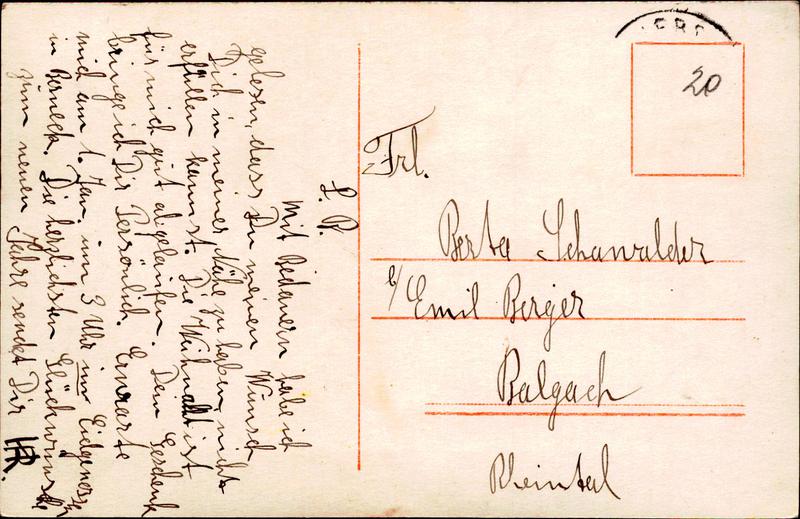 L. B.
Mit Bedauern habe ich
gelesen, dass Du meinen Wunsch
Dich in meiner Nähe zu haben, nicht
erfüllen kannst. Die Weihnacht ist
für mich gut abgelaufen. Dein Geschenk
bringe ich Dir Persönlich. Erwarte
mich am 1. Jan. um 3 Uhr im Eidgenossen
in Berneck. Die herzlichsten Glückwünsche
zum neuen Jahre sendet Dir
HR.
20
Frl.
Berta Schawalder
c/ Emil Berger
Balgach
Rheintal